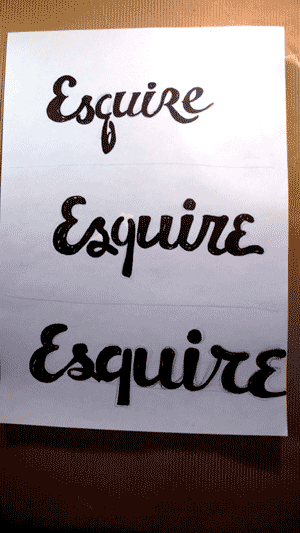 Esquire
Esquire
Esquire